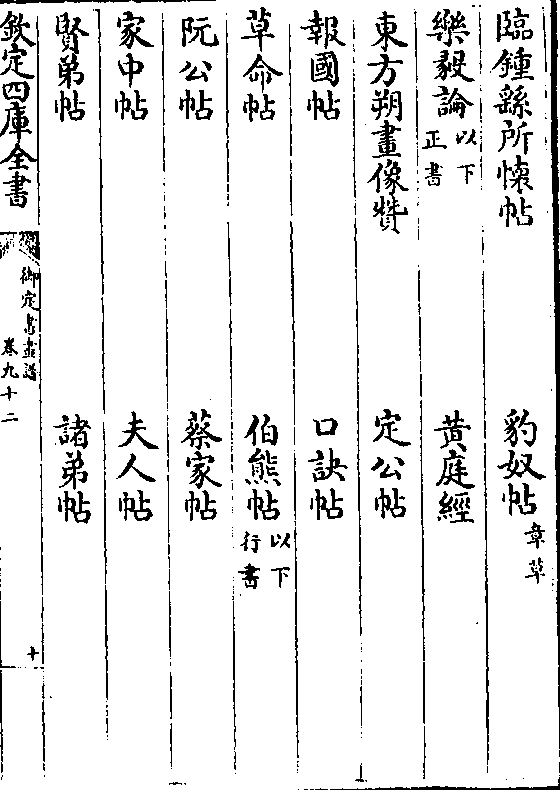 臨鍾繇所懷帖　豹奴帖章草
樂毅論以下正書　黃庭經
東方朔畫像贊　定公帖
報國帖　口訣帖
草命帖　伯熊帖以下行書
阮公帖　蔡家帖
家中帖　夫人帖
賢弟帖　諸弟帖
欽定四庫全書　御定書畫譜　卷九十二　十